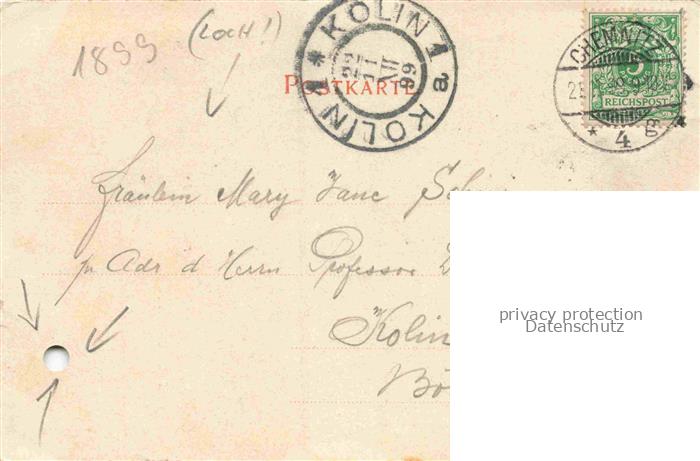 1899 (Loch!)
KOLIN 1 a * KOLIN 1
22 11 XII 99
POSTKARTE
CHEMNITZ
* 4 g *
5
REICHSPOST
Fräulein Mary Jane
p Adr d Herrn Professor
Kolin
Bö
privacy protection
Datenschutz